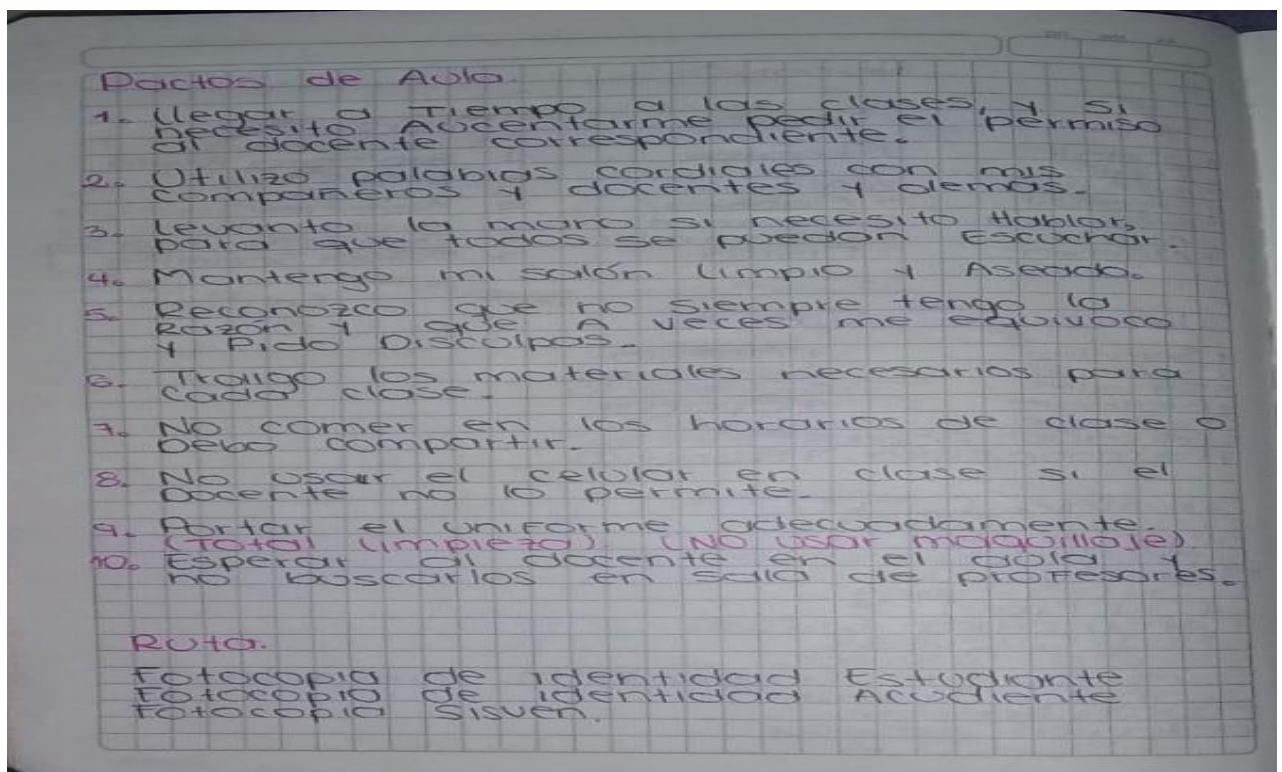 Pactos de Aula.
1. Llegar a Tiempo a las clases, y si
necesito Aucentarme pedir el permiso
al docente correspondiente.
2. Utilizo palabras cordiales con mis
compañeros y docentes y demas.
3. Levanto la mano si necesito Hablar,
para que todos se puedan Escuchar.
4. Mantengo mi salón limpio y Aseado.
5. Reconozco que no siempre tengo la
Razón y que A veces me equivoco
y Pido Disculpas.
6. Traigo los materiales necesarios para
cada clase.
7. No comer en los horarios de clase o
Debo compartir.
8. No usar el celular en clase si el
Docente no lo permite.
9. Portar el uniforme adecuadamente.
(Total limpieza) (No usar maquillaje)
10. Esperar al docente en el aula y
no buscarlos en sala de profesores.
Ruta.
Fotocopia de identidad Estudiante
Fotocopia de identidad Acudiente
Fotocopia Sisven.